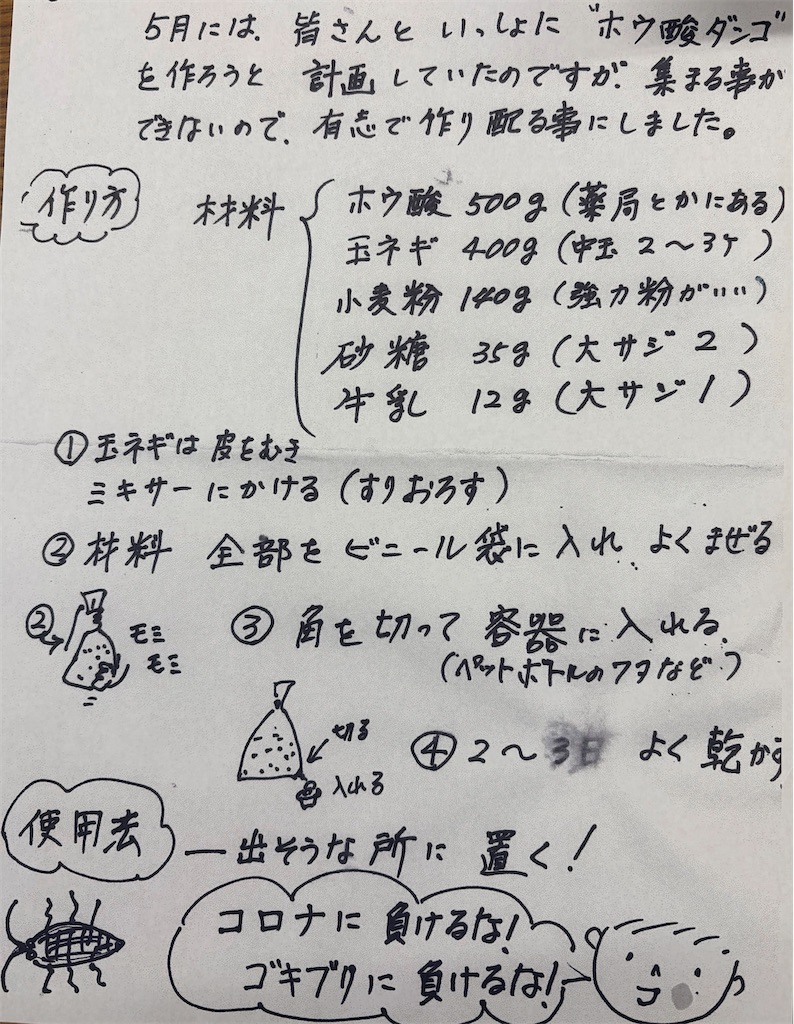 5月には、皆さんといっしょに"ホウ酸ダンゴ"
を作ろうと 計画していたのですが、集まる事が
できないので、有志で作り配る事にしました。
作り方
材料
ホウ酸 500g (薬局とかにある)
玉ネギ 400g (中玉 2〜3ケ)
小麦粉 140g (強力粉がいい)
砂糖 35g (大サジ 2)
牛乳 12g (大サジ 1)
①玉ネギは皮をむき
ミキサーにかける (すりおろす)
②材料 全部をビニール袋に入れ、よくまぜる
②
モミ
モミ
③ 角を切って 容器に入れる、
(ペットボトルのフタなど)
切る
入れる
④ 2〜3日 よく乾かす
使用法
—出そうな所に 置く!
コロナに 負けるな!
ゴキブリに 負けるな!